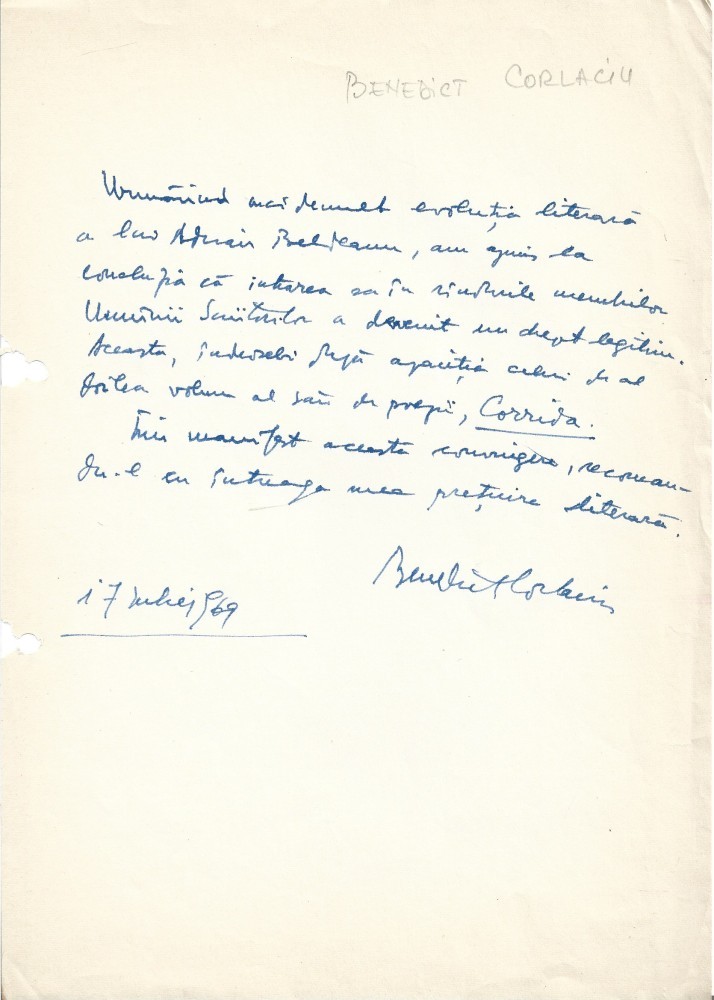 BENEDICT CORLACIU
Urmărind mai demult evoluția literară
a lui Adrian Beldeanu, am ajuns la
concluzia că intrarea sa în rîndurile membrilor
Uniunii Scriitorilor a devenit un drept legitim.
Aceasta, îndeosebi după apariția celui de al
doilea volum al său de poezii, Corrida.
Îmi manifest această convingere, recoman-
du-l cu întreaga mea prețuire literară.
Benedict Corlaciu
17 iulie 1969